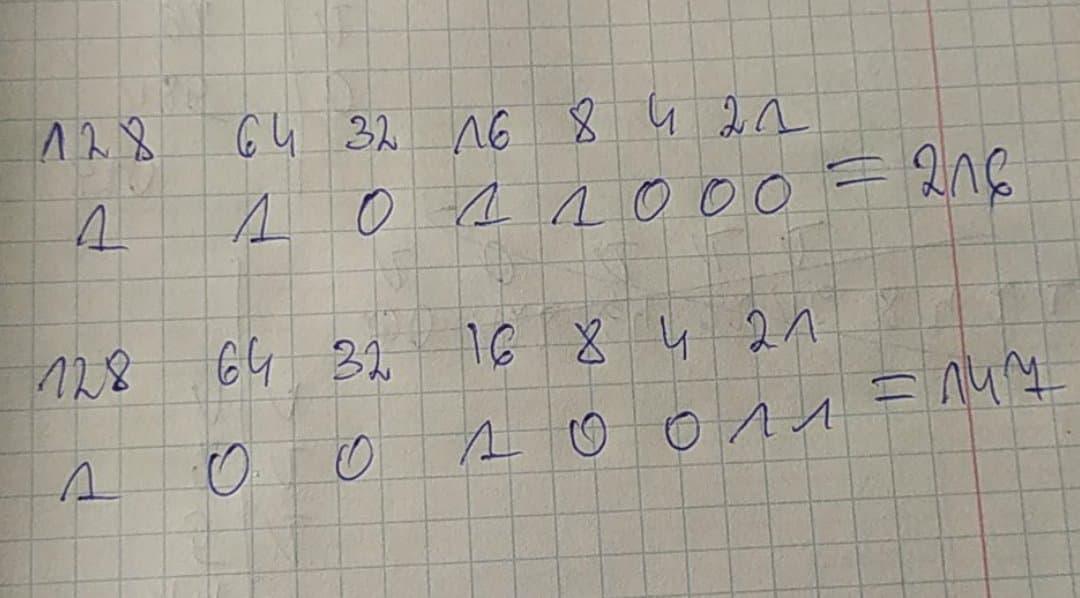 128 64 32 16 8 4 2 1
1 1 0 1 1 0 0 0 = 216
128 64 32 16 8 4 2 1
1 0 0 1 0 0 1 1 = 147